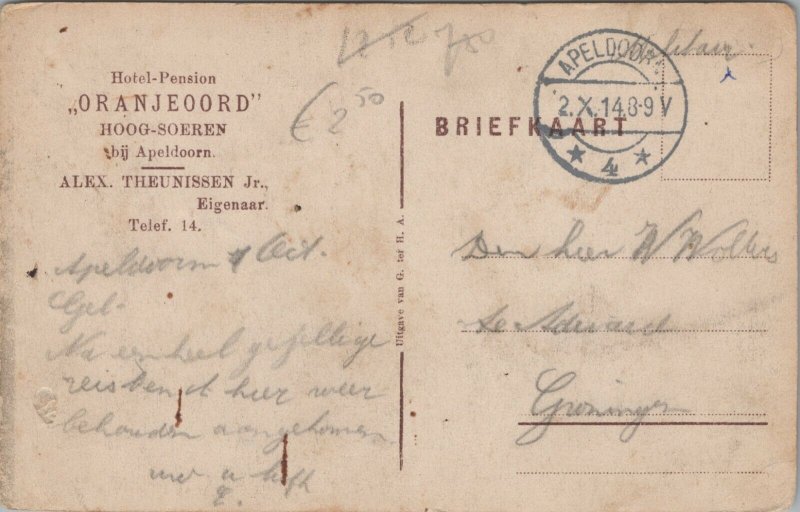 Hotel-Pension
„ORANJEOORD"
HOOG-SOEREN
bij Apeldoorn.
ALEX. THEUNISSEN Jr.,
Eigenaar.
Telef. 14.
€ 2 50
APELDOORN
2.X.14.8-9V
4
Militair
BRIEFKAART
Uitgave van G. ter H. A.
Apeldoorn 1 Oct.
Gel.
Na een heel gezellige
reis ben ik hier weer
behouden aangekomen
Den heer W Wolters
te Aduard
Groningen